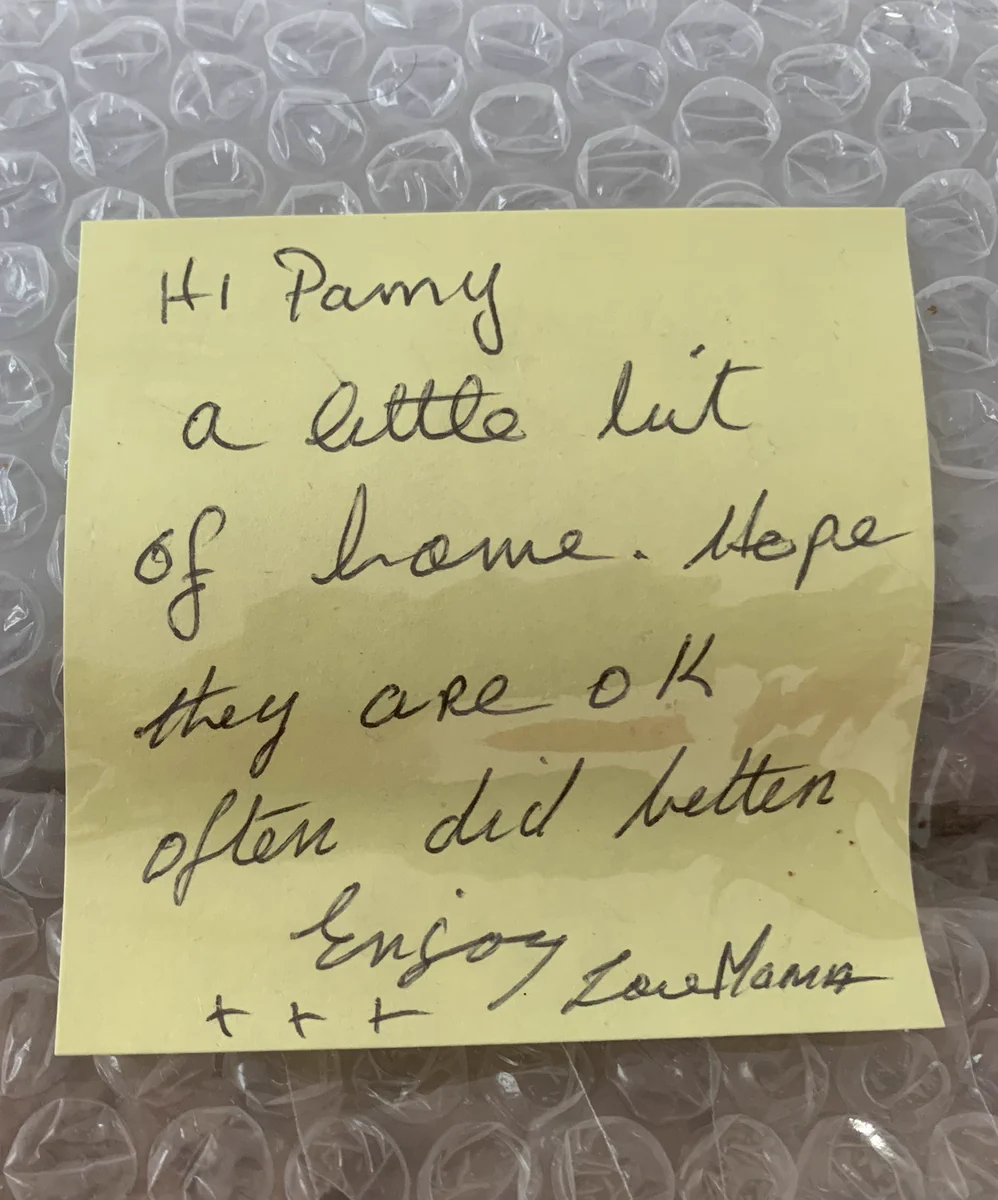 Hi Pamy
a little bit
of home. Hope
they are OK
often did better
Enjoy
+ + + Love Mama